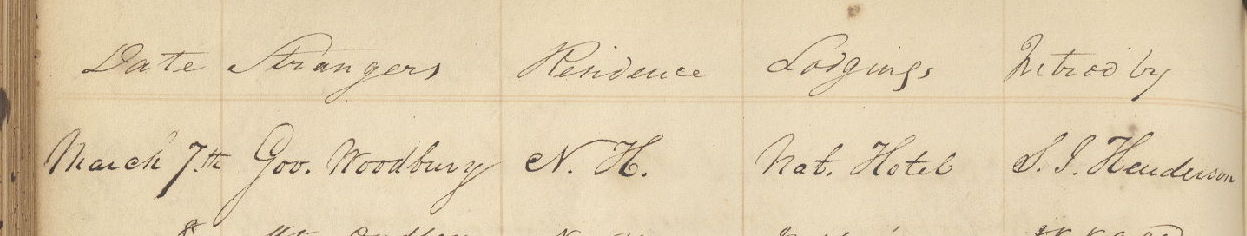 Date Strangers Residence Lodgings Introd by
March 7th Gov. Woodbury N. H. Nat. Hotel S. J. Henderson